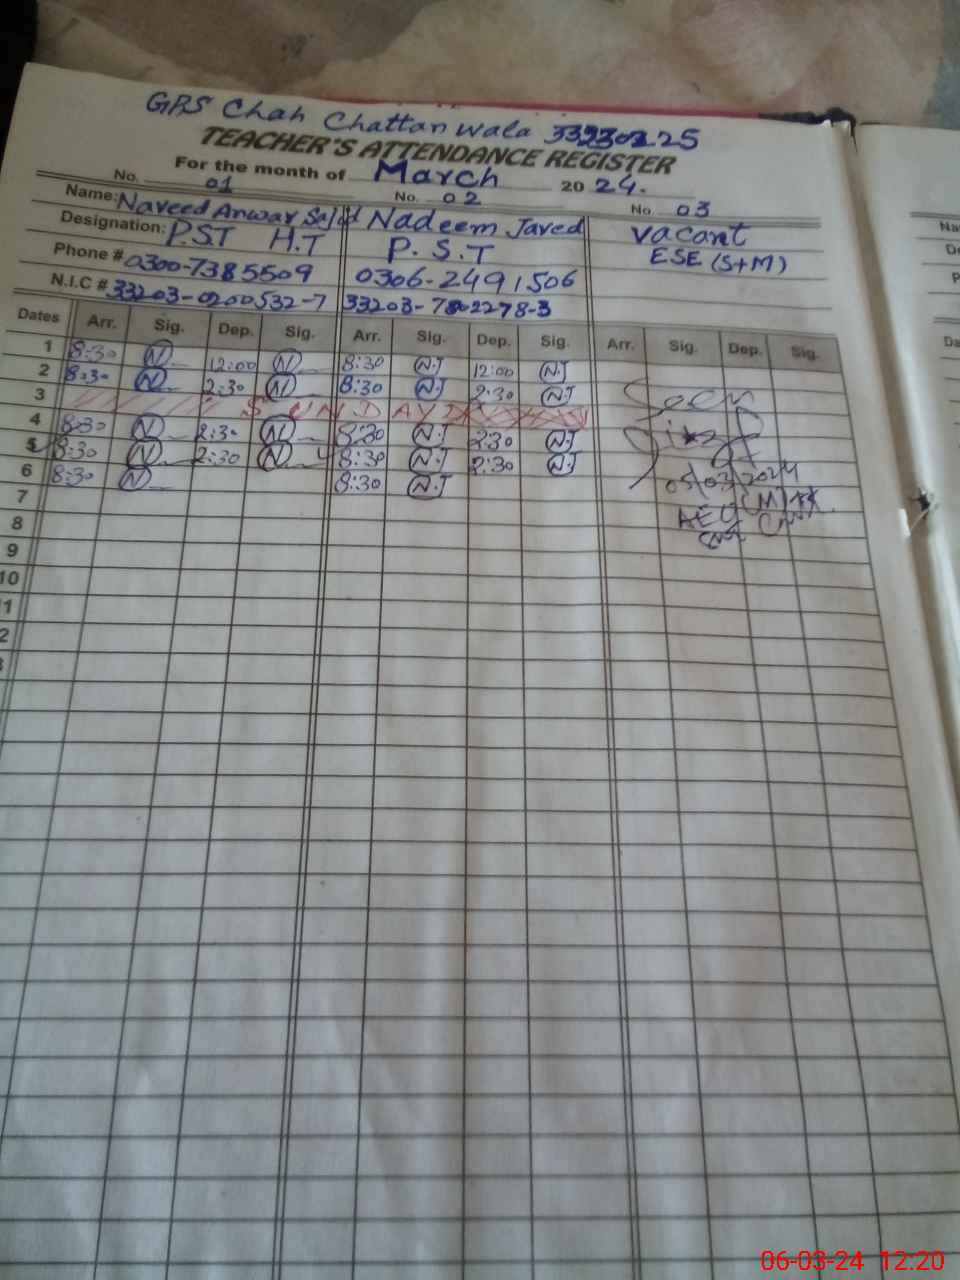 GPS Chah Chattan Wala 33230225
TEACHER'S ATTENDANCE REGISTER
For the month of March 2024.
No. 01 No. 02 No. 03
Name: Naveed Anwar Sajid Nadeem Javed Vacant
Designation: P.S.T H.T P.S.T ESE (S+M)
Phone # 0300-7385509 0306-2491506
N.I.C # 33203-0200532-7 33203-7802278-3
Dates Arr. Sig. Dep. Sig. Arr. Sig. Dep. Sig. Arr. Sig. Dep. Sig.
1 8:30 N 12:00 N 8:30 N.J 12:00 N.J
2 8:30 N 2:30 N 8:30 N.J 2:30 N.J Seen
3 SUNDAY
4 8:30 N 2:30 N 8:30 N.J 2:30 N.J
5 8:30 N 2:30 N 8:30 N.J 2:30 N.J 05/03/2024
6 8:30 N 8:30 N.J (M)
7 AEO
8
9
10
11
06-03-24 12:20